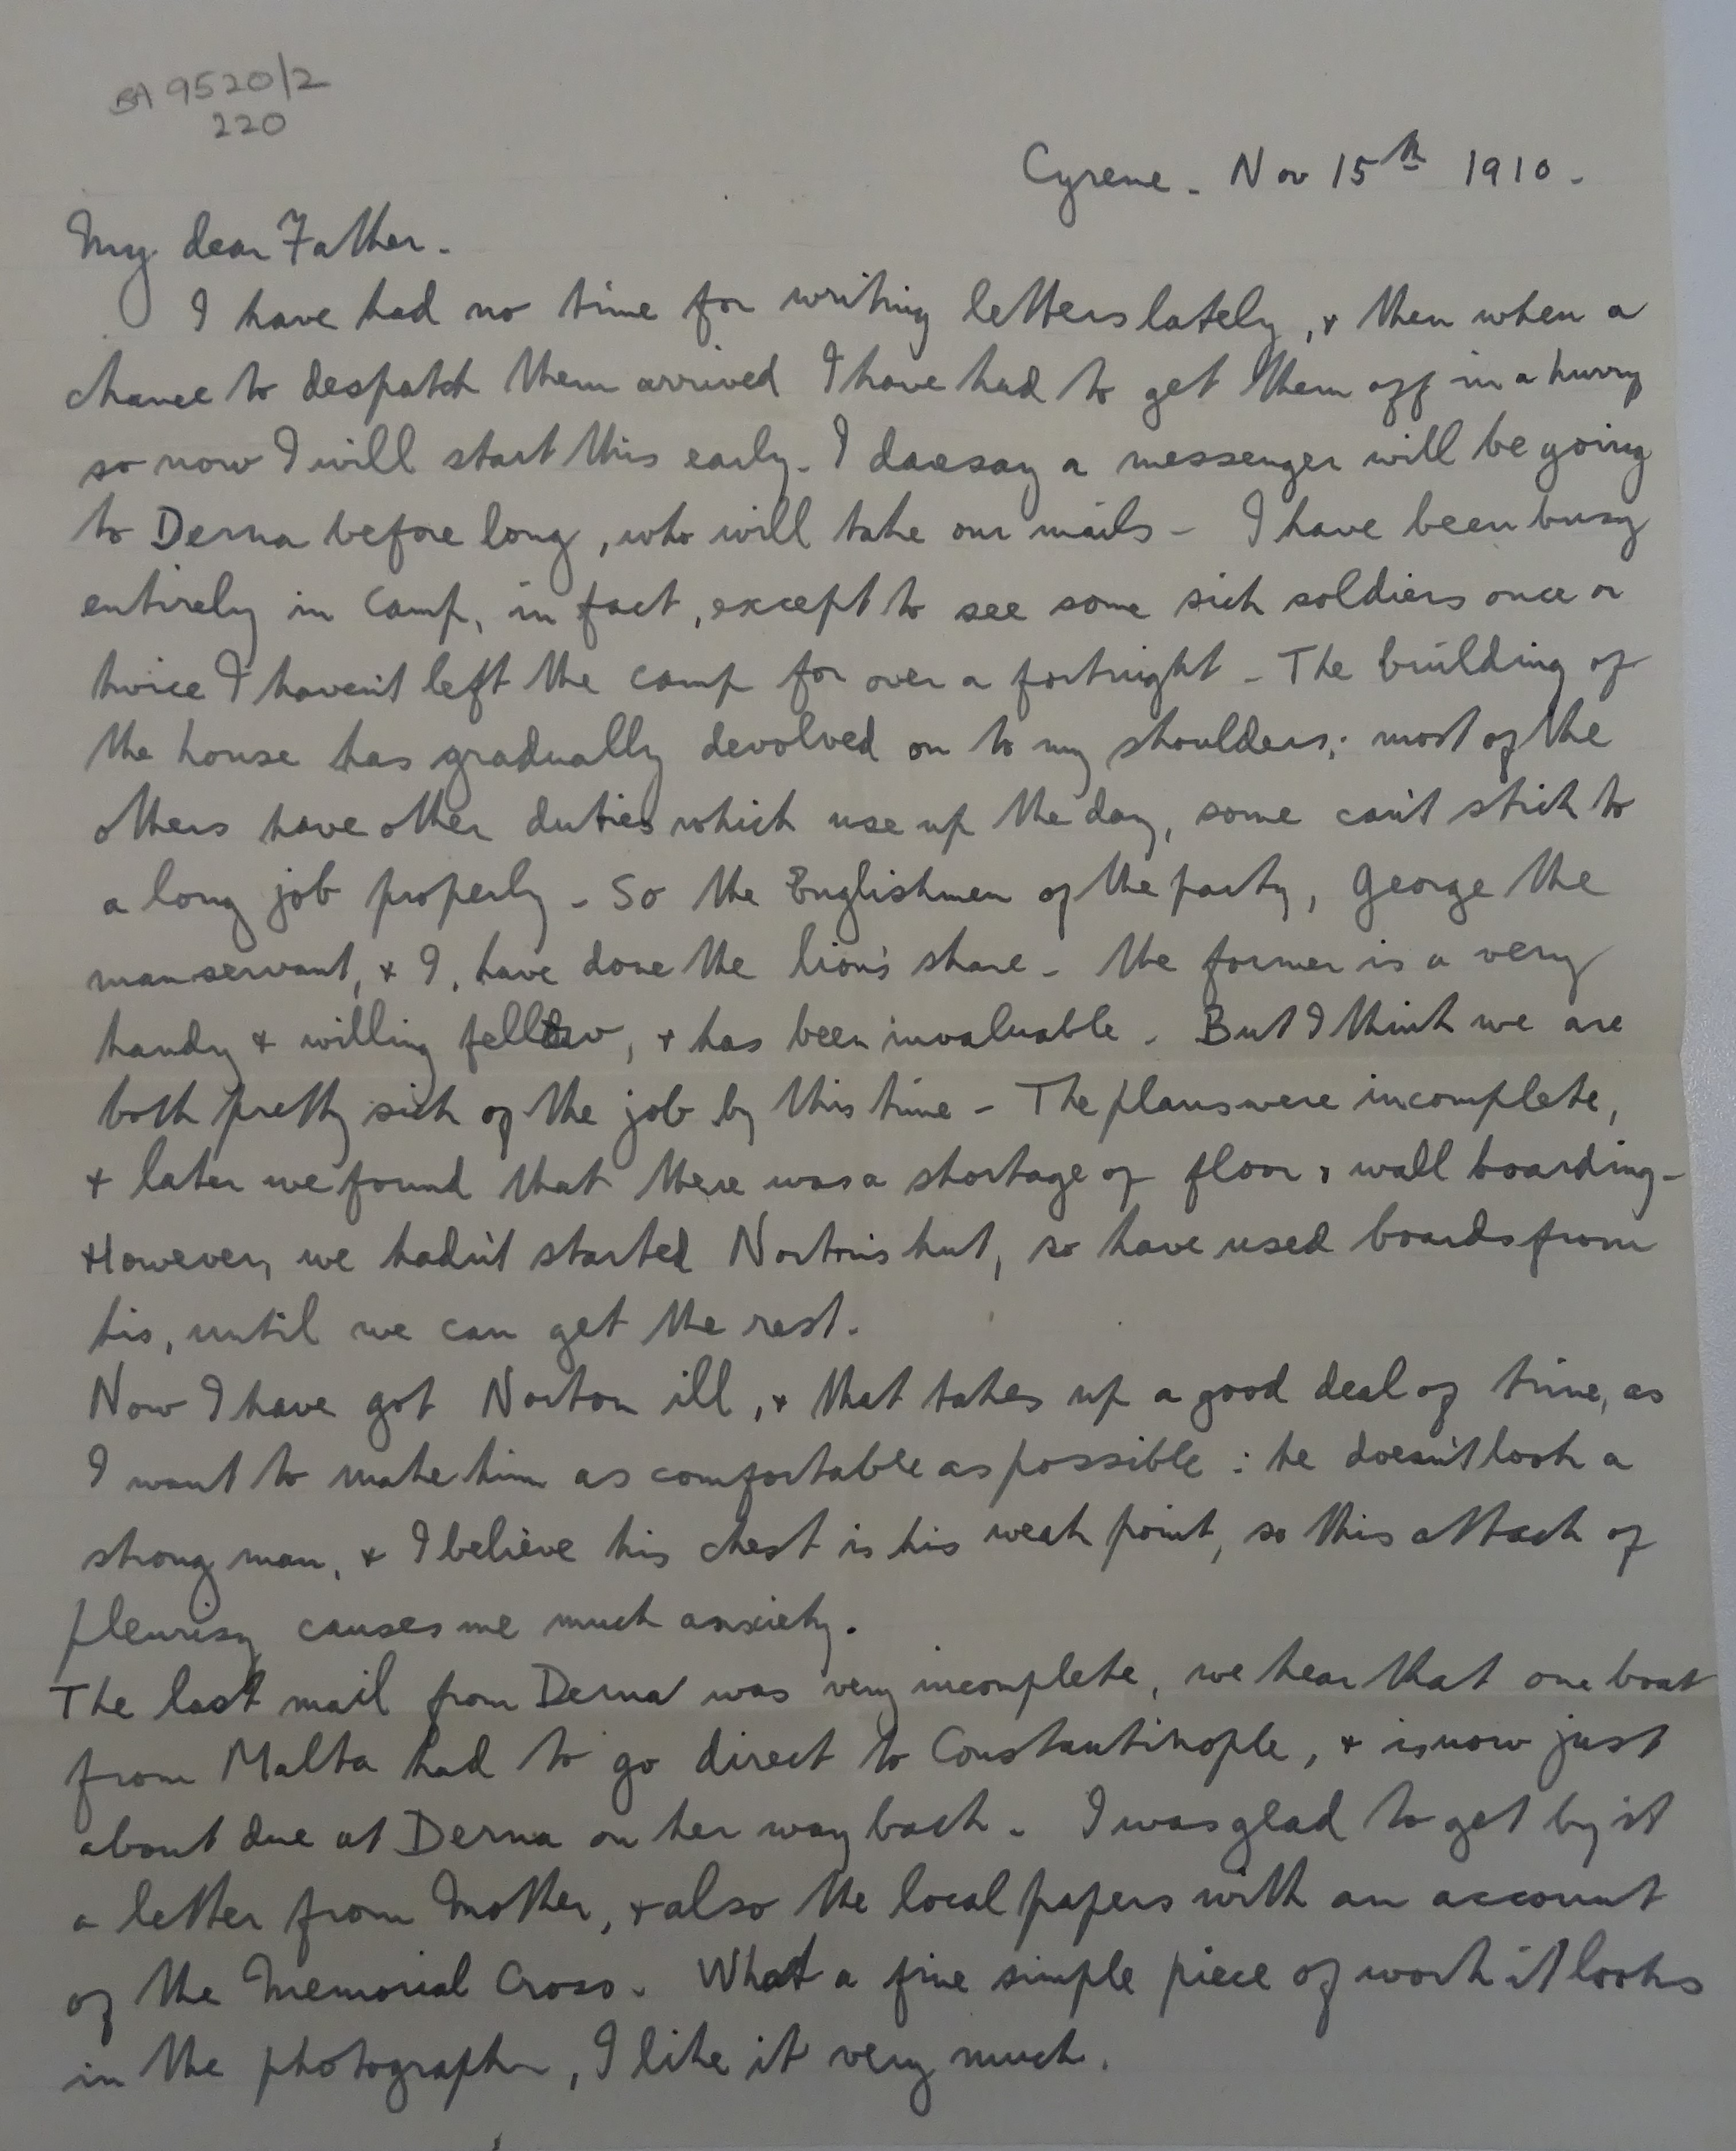 BA 9520/2
220
Cyrene - Nov 15th 1910 -
My dear Father -
I have had no time for writing letters lately, & then when a
chance to despatch them arrived I have had to get them off in a hurry
so now I will start this early - I daresay a messenger will be going
to Derna before long, who will take our mails - I have been busy
entirely in camp, in fact, except to see some sick soldiers once or
twice I haven't left the camp for over a fortnight - The building of
the house has gradually devolved on to my shoulders; most of the
others have other duties which use up the day, some can't stick to
a long job properly - So the Englishmen of the party, George the
manservant, & I, have done the lion's share - the former is a very
handy & willing fellow, & has been invaluable - But I think we are
both pretty sick of the job by this time - The plans were incomplete,
& later we found that there was a shortage of floor & wall boarding -
However, we hadn't started Norton's hut, so have used boards from
his, until we can get the rest.
Now I have got Norton ill, & that takes up a good deal of time, as
I want to make him as comfortable as possible : he doesn't look a
strong man, & I believe his chest is his weak point, so this attack of
pleurisy causes me much anxiety.
The last mail from Derna was very incomplete, we hear that one boat
from Malta had to go direct to Constantinople, & is now just
about due at Derna on her way back - I was glad to get by it
a letter from Mother, & also the local papers with an account
of the Memorial Cross. What a fine simple piece of work it looks
in the photograph, I like it very much.